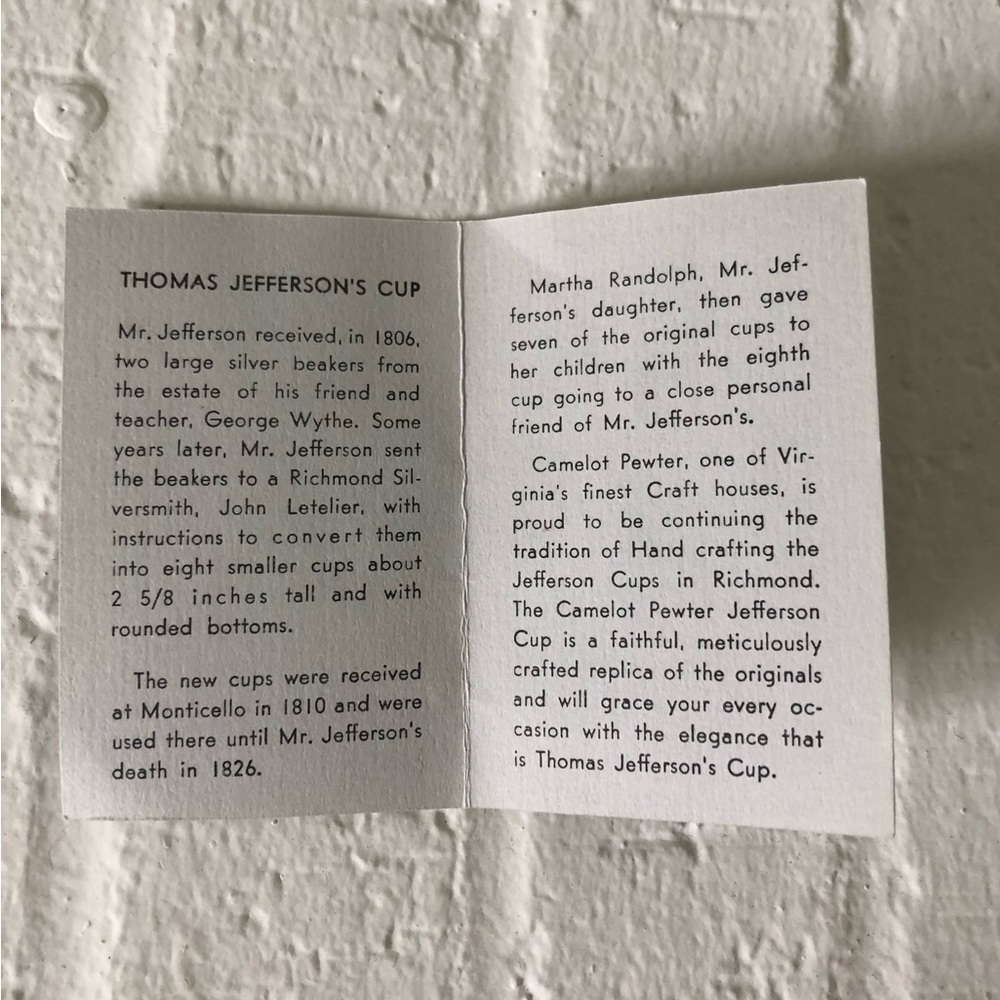 THOMAS JEFFERSON'S CUP
Mr. Jefferson received, in 1806,
two large silver beakers from
the estate of his friend and
teacher, George Wythe. Some
years later, Mr. Jefferson sent
the beakers to a Richmond Sil-
versmith, John Letelier, with
instructions to convert them
into eight smaller cups about
2 5/8 inches tall and with
rounded bottoms.
The new cups were received
at Monticello in 1810 and were
used there until Mr. Jefferson's
death in 1826.
Martha Randolph, Mr. Jef-
ferson's daughter, then gave
seven of the original cups to
her children with the eighth
cup going to a close personal
friend of Mr. Jefferson's.
Camelot Pewter, one of Vir-
ginia's finest Craft houses, is
proud to be continuing the
tradition of Hand crafting the
Jefferson Cups in Richmond.
The Camelot Pewter Jefferson
Cup is a faithful, meticulously
crafted replica of the originals
and will grace your every oc-
casion with the elegance that
is Thomas Jefferson's Cup.